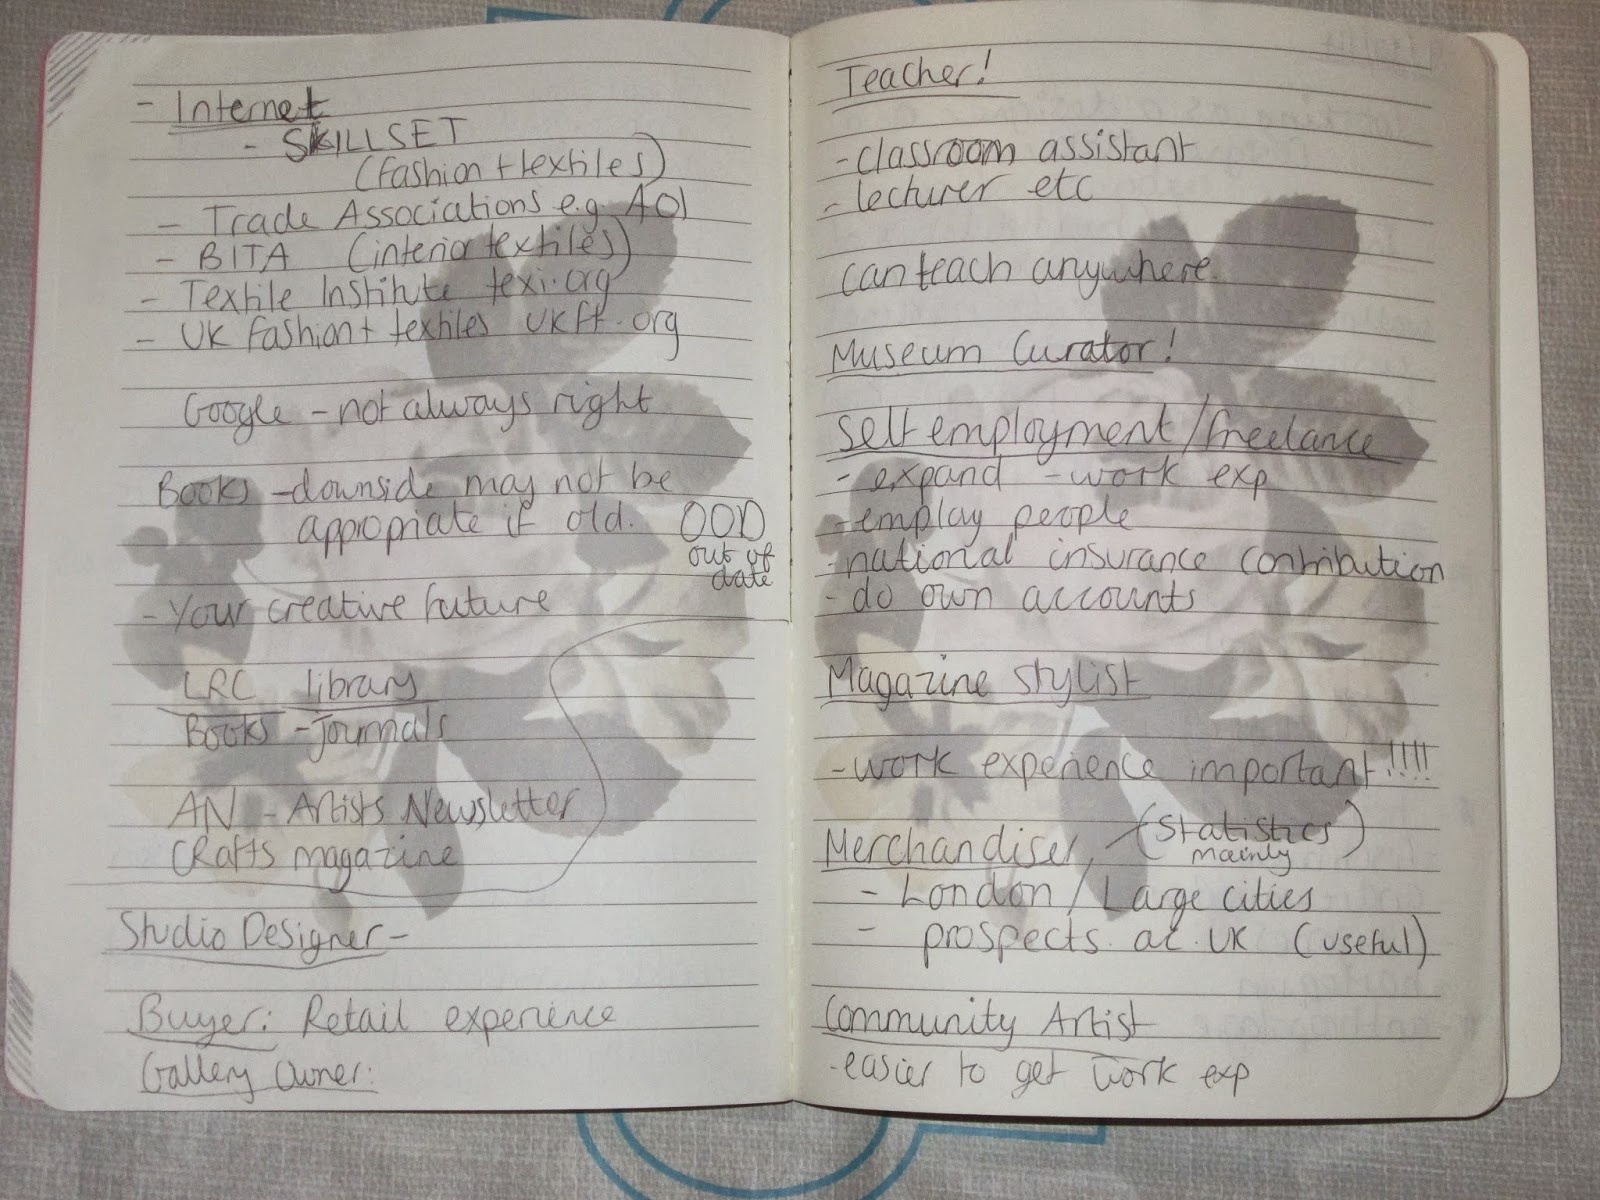 - Internet
- SKILLSET
(fashion + textiles)
- Trade Associations e.g AOI
- BITA (interior textiles)
- Textile Institute texi.org
- UK fashion + textiles UKft.org
Google - not always right
Books - downside may not be
appropiate if old. OOD
out of
date
- Your creative future
LRC library
Books - Journals
AN - Artists Newsletter
CRafts magazine
Studio Designer -
Buyer: Retail experience
Gallery Owner:
Teacher!
- classroom assistant
- lecturer etc
can teach anywhere.
Museum Curator!
Self employment / freelance
- expand - work exp
- employ people
- national insurance contribution
- do own accounts
Magazine Stylist
- work experience important!!!!
Merchandiser, - (Statistics)
mainly
- London / Large cities
- prospects. ac. UK (useful)
Community Artist
- easier to get work exp